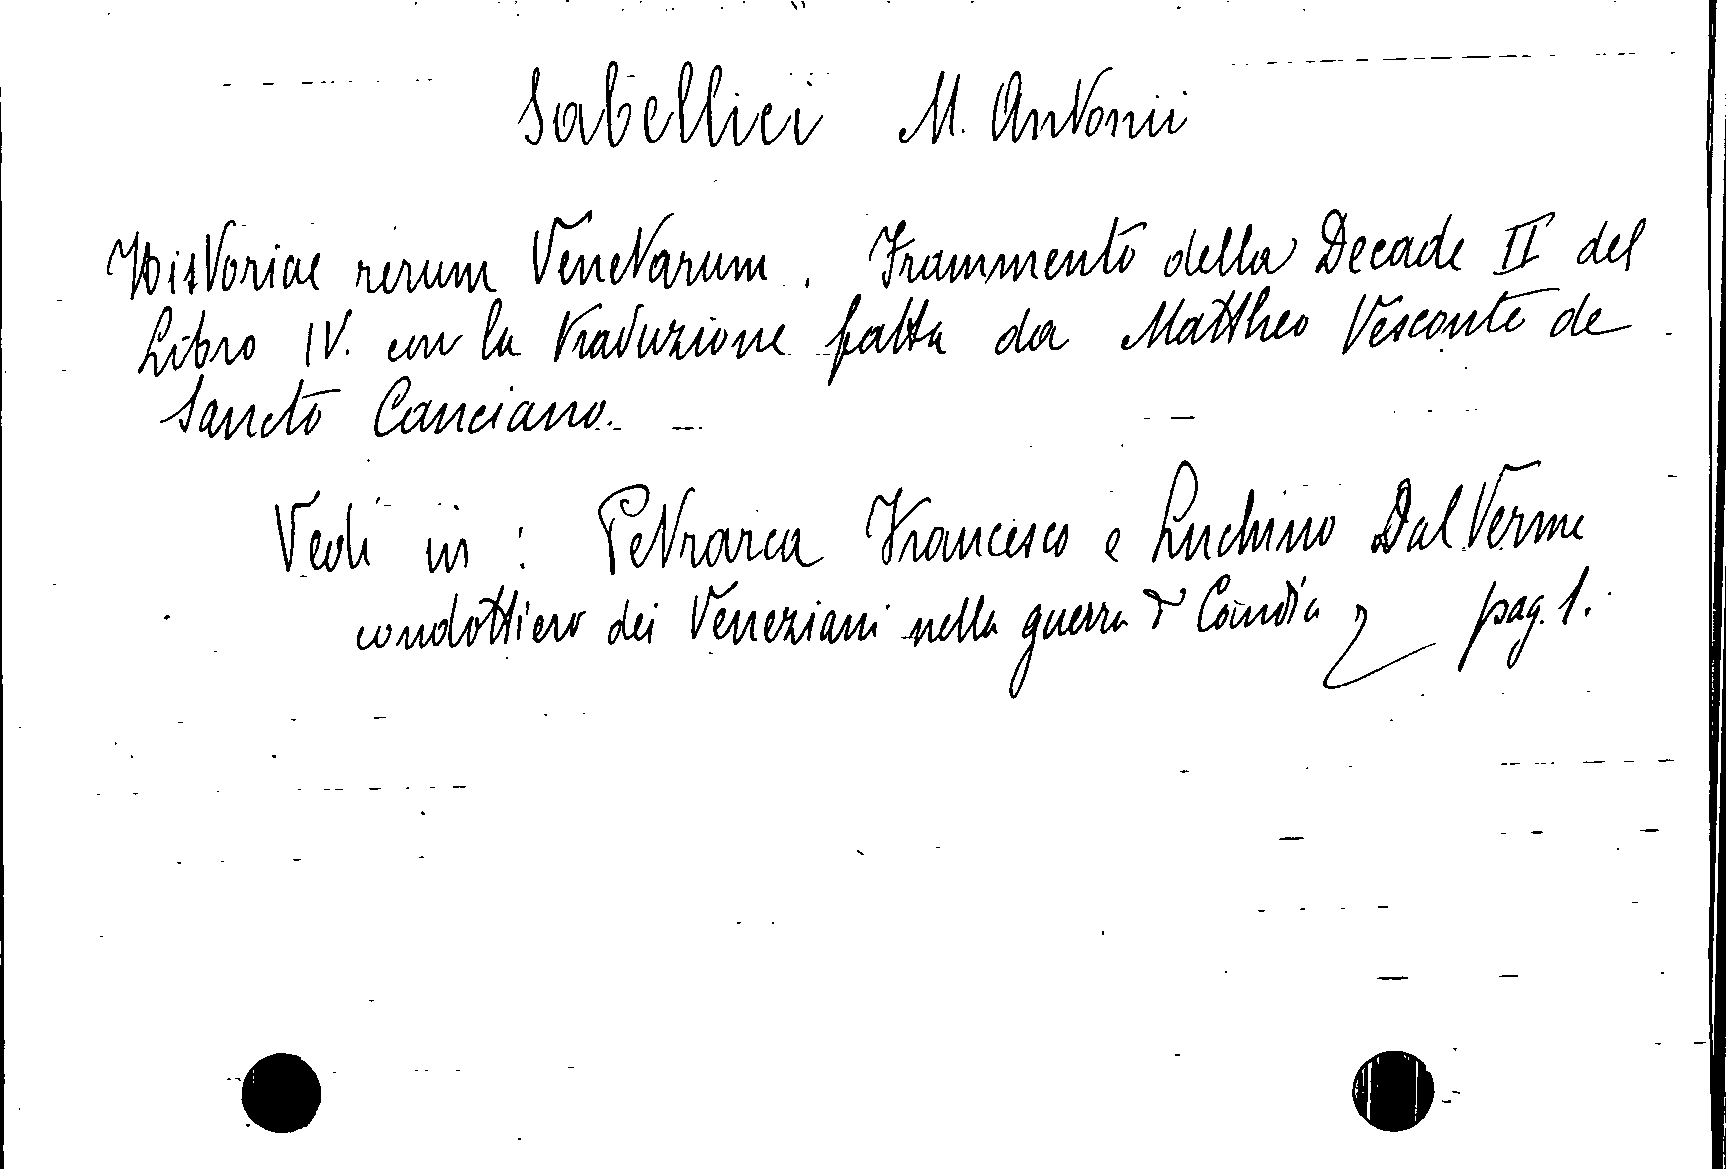 Sabellici M. Antonii
Historiae rerum Venetarum. Frammento della Decade II del
Libro IV. con la traduzione fatta da Mattheo Vesconte de
Sancto Canciano.
Vedi in : Petrarca Francesco e Luchino Dal Verme
condottiero dei Veneziani nella guerra di Candia pag. 1.